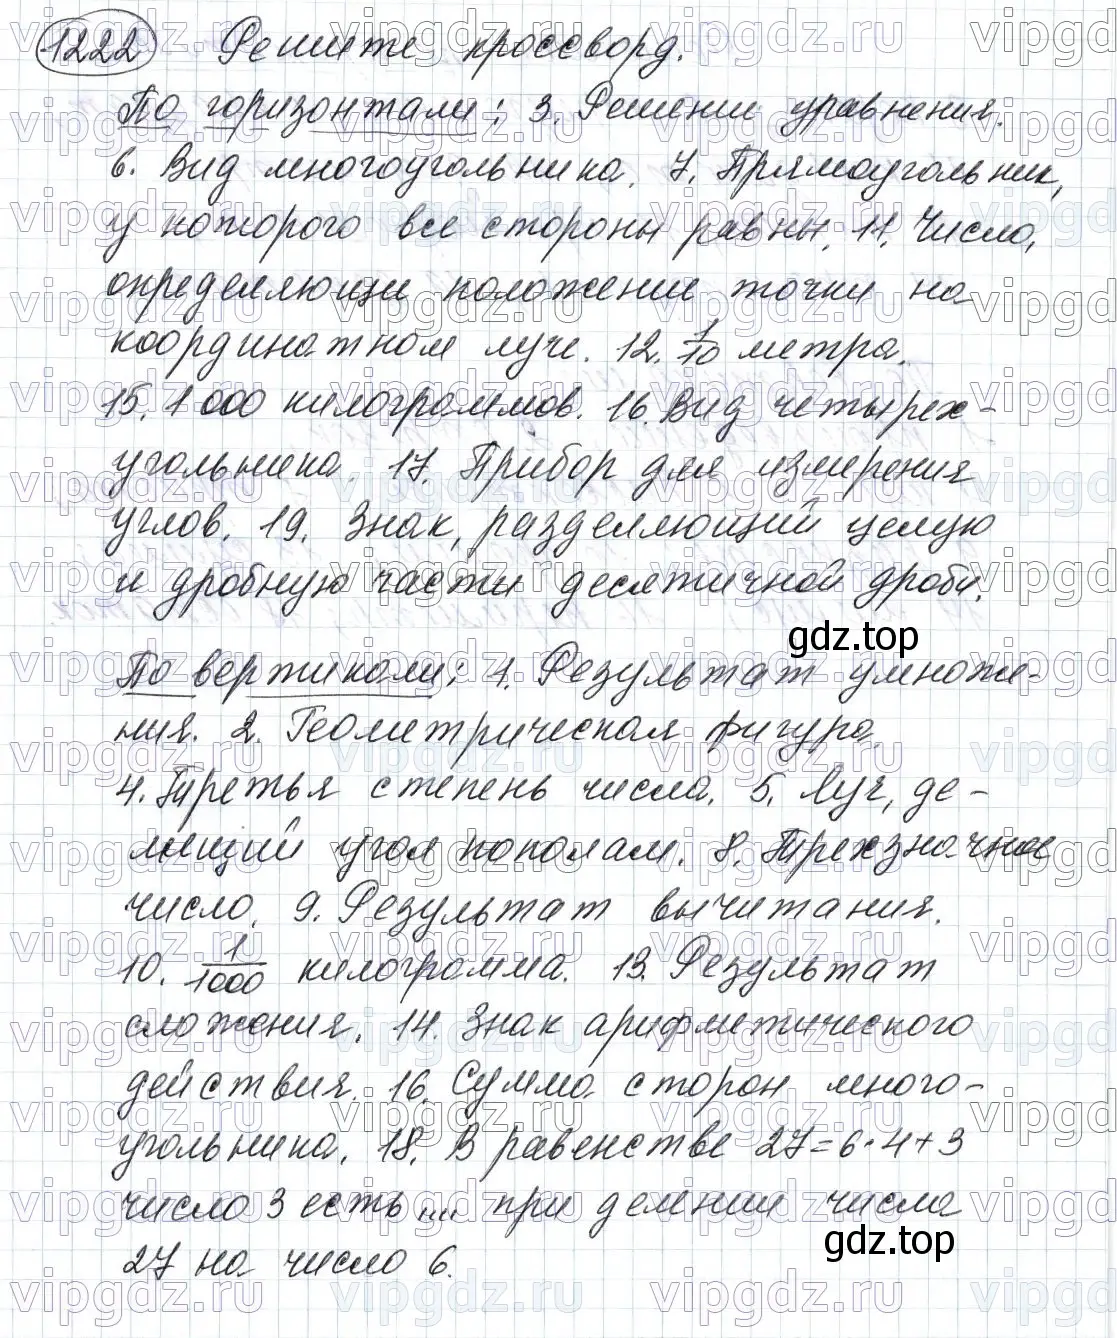 1222 Решите кроссворд.
По горизонтали: 3. Решении уравнения.
6. Вид многоугольника. 7. Прямоугольник,
у которого все стороны равны. 11. Число,
определяющие положение точки на
координатном луче. 12. 1/10 метра.
15. 1 000 килограммов. 16. Вид четырех-
угольника. 17. Прибор для измерения
углов. 19. Знак, разделяющий целую
и дробную части десятичной дроби.
gdz.top
По вертикали: 1. Результат умноже-
ния. 2. Геометрическая фигура.
4. Третья степень числа. 5. Луч, де-
лящий угол пополам. 8. Трехзначное
число. 9. Результат вычитания.
10. 1/1000 килограмма. 13. Результат
сложения. 14. Знак арифметического
действия. 16. Сумма сторон много-
угольника. 18. В равенстве 27=6·4+3
число 3 есть ... при делении числа
gdz.top
27 на число 6.